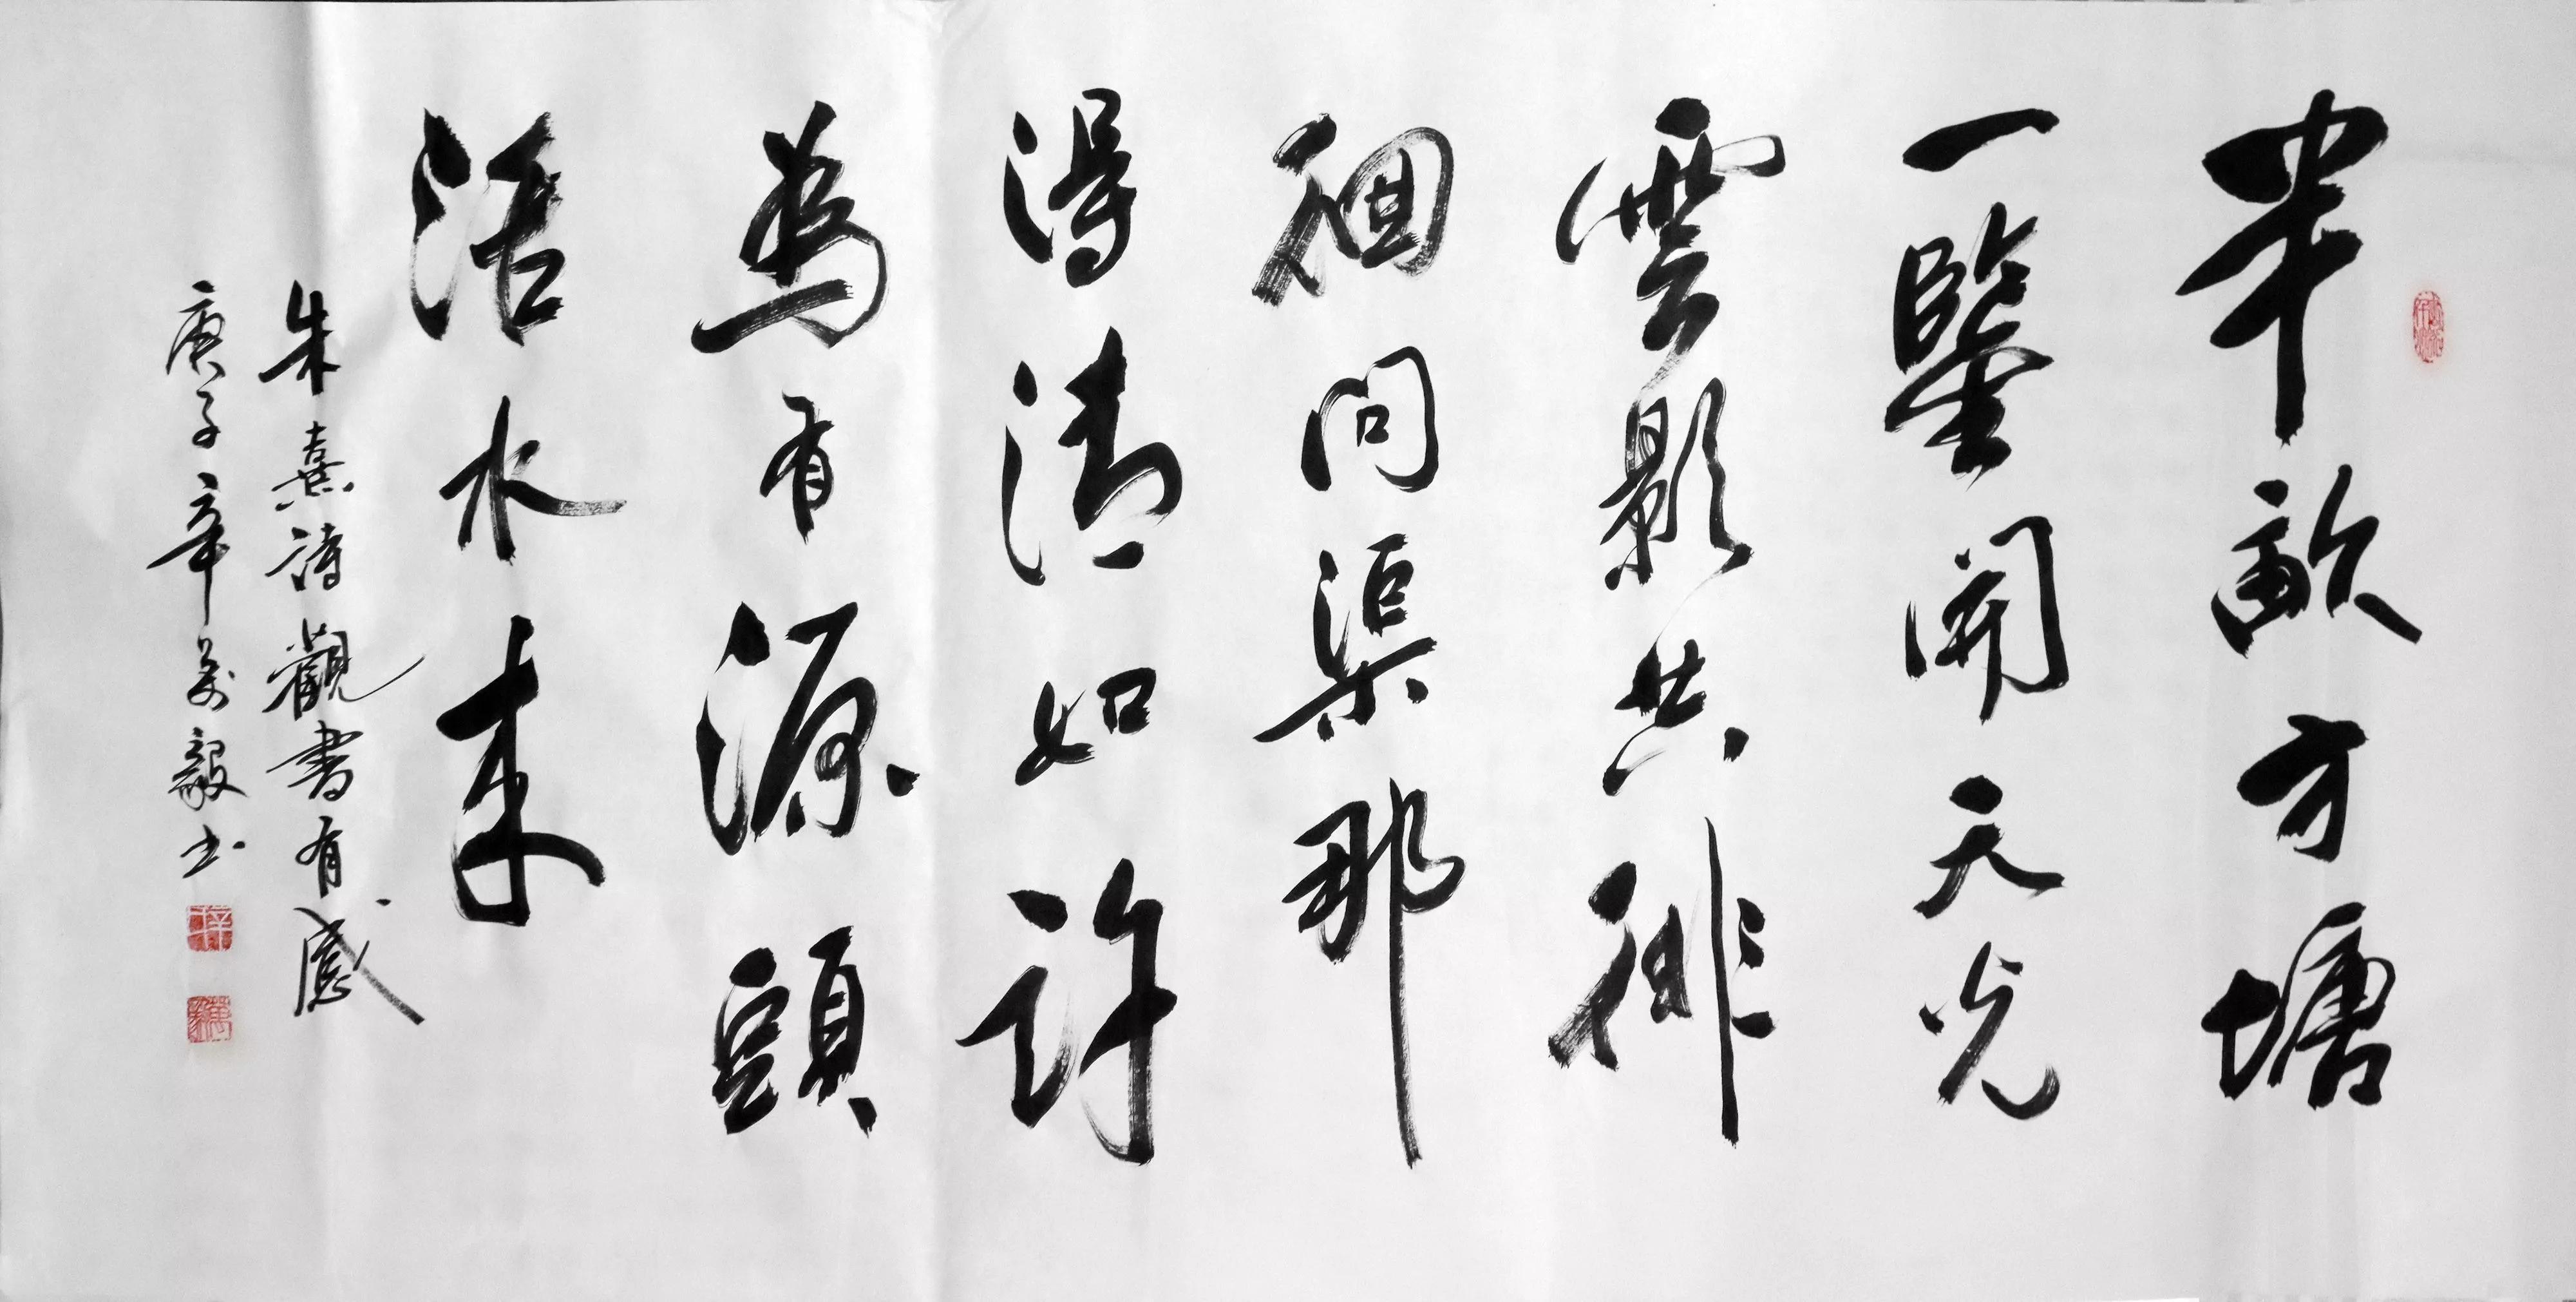 半畝方塘
一鑒開天光
雲影共排
徊問渠那
得清如許
為有源頭
活水來
朱熹詩觀書有感
庚子辛萬毅书